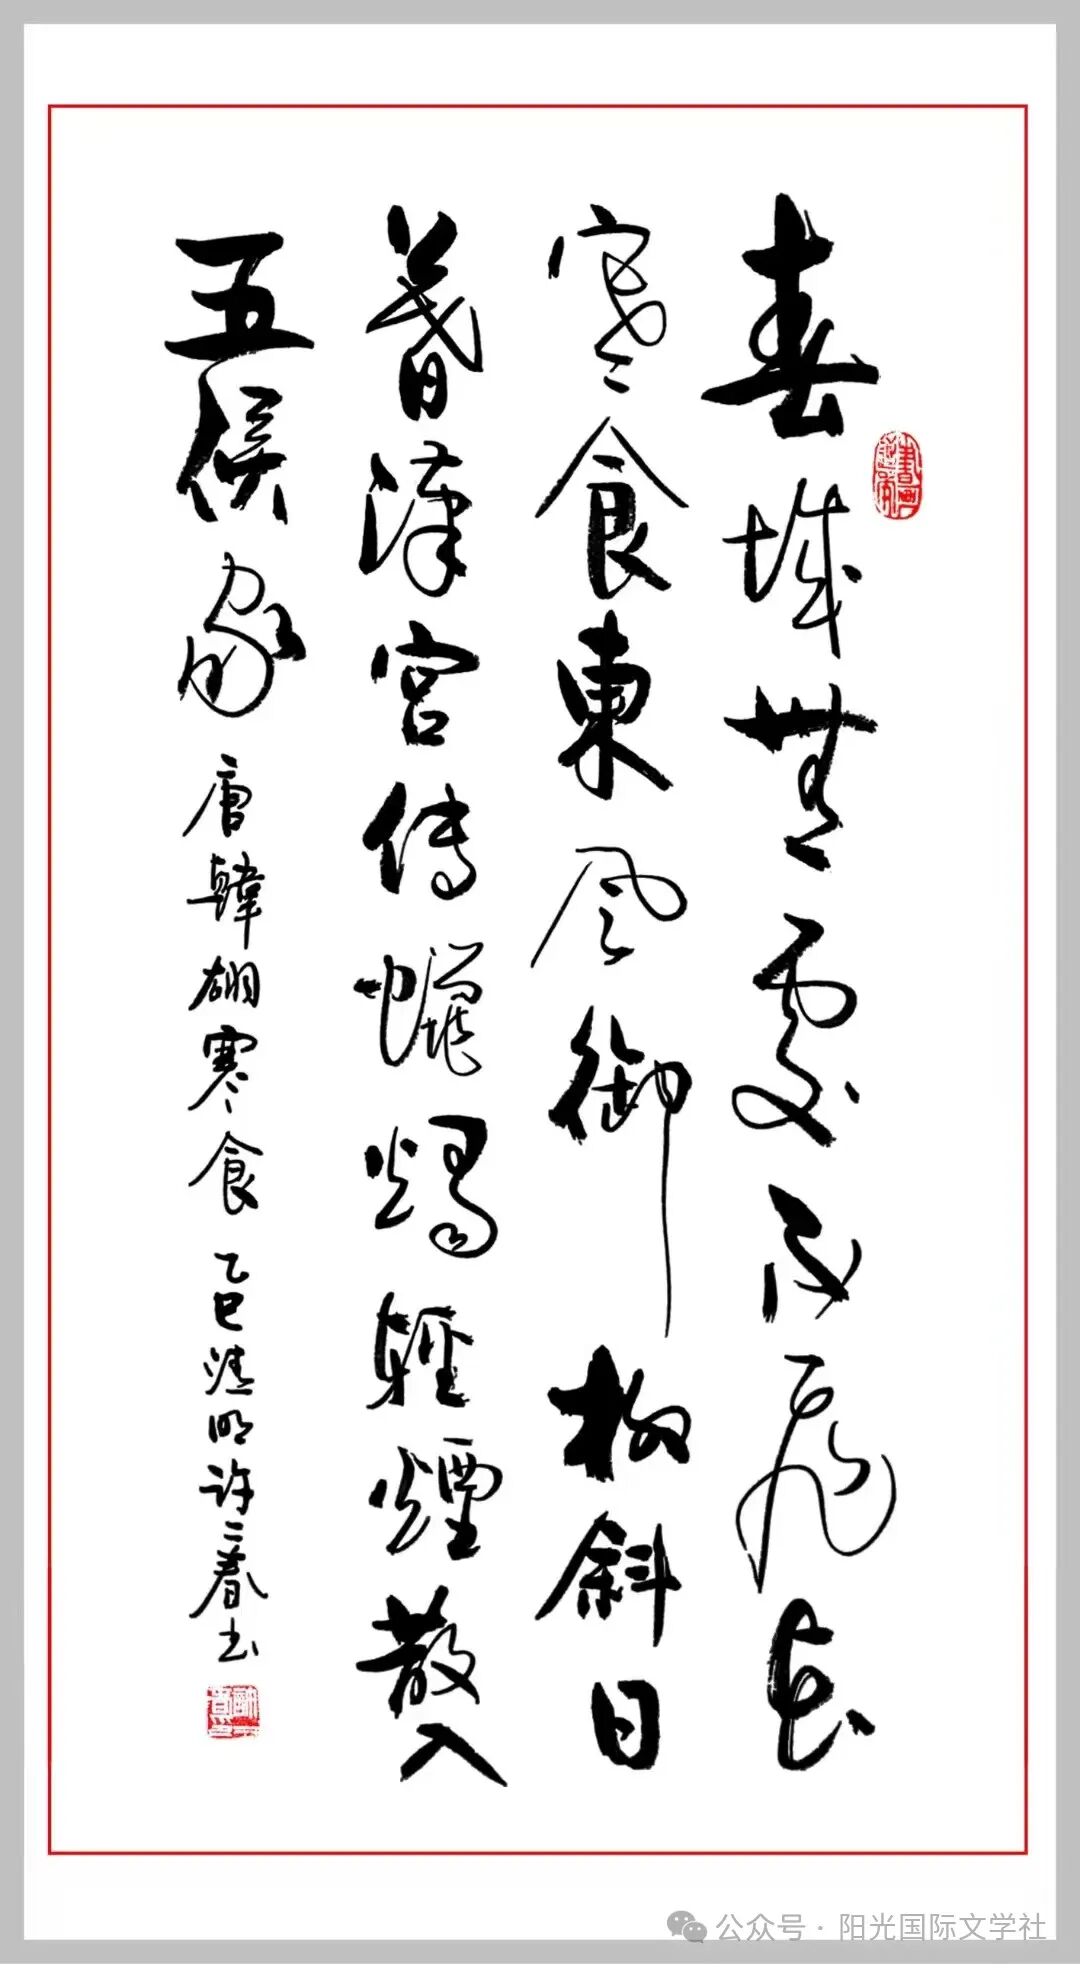 春城無處不飛花
寒食東風御柳斜日
暮漢宮傳蠟燭輕煙散入
五侯家 唐韓翃寒食 乙巳清明许二春书
公众号 · 阳光国际文学社